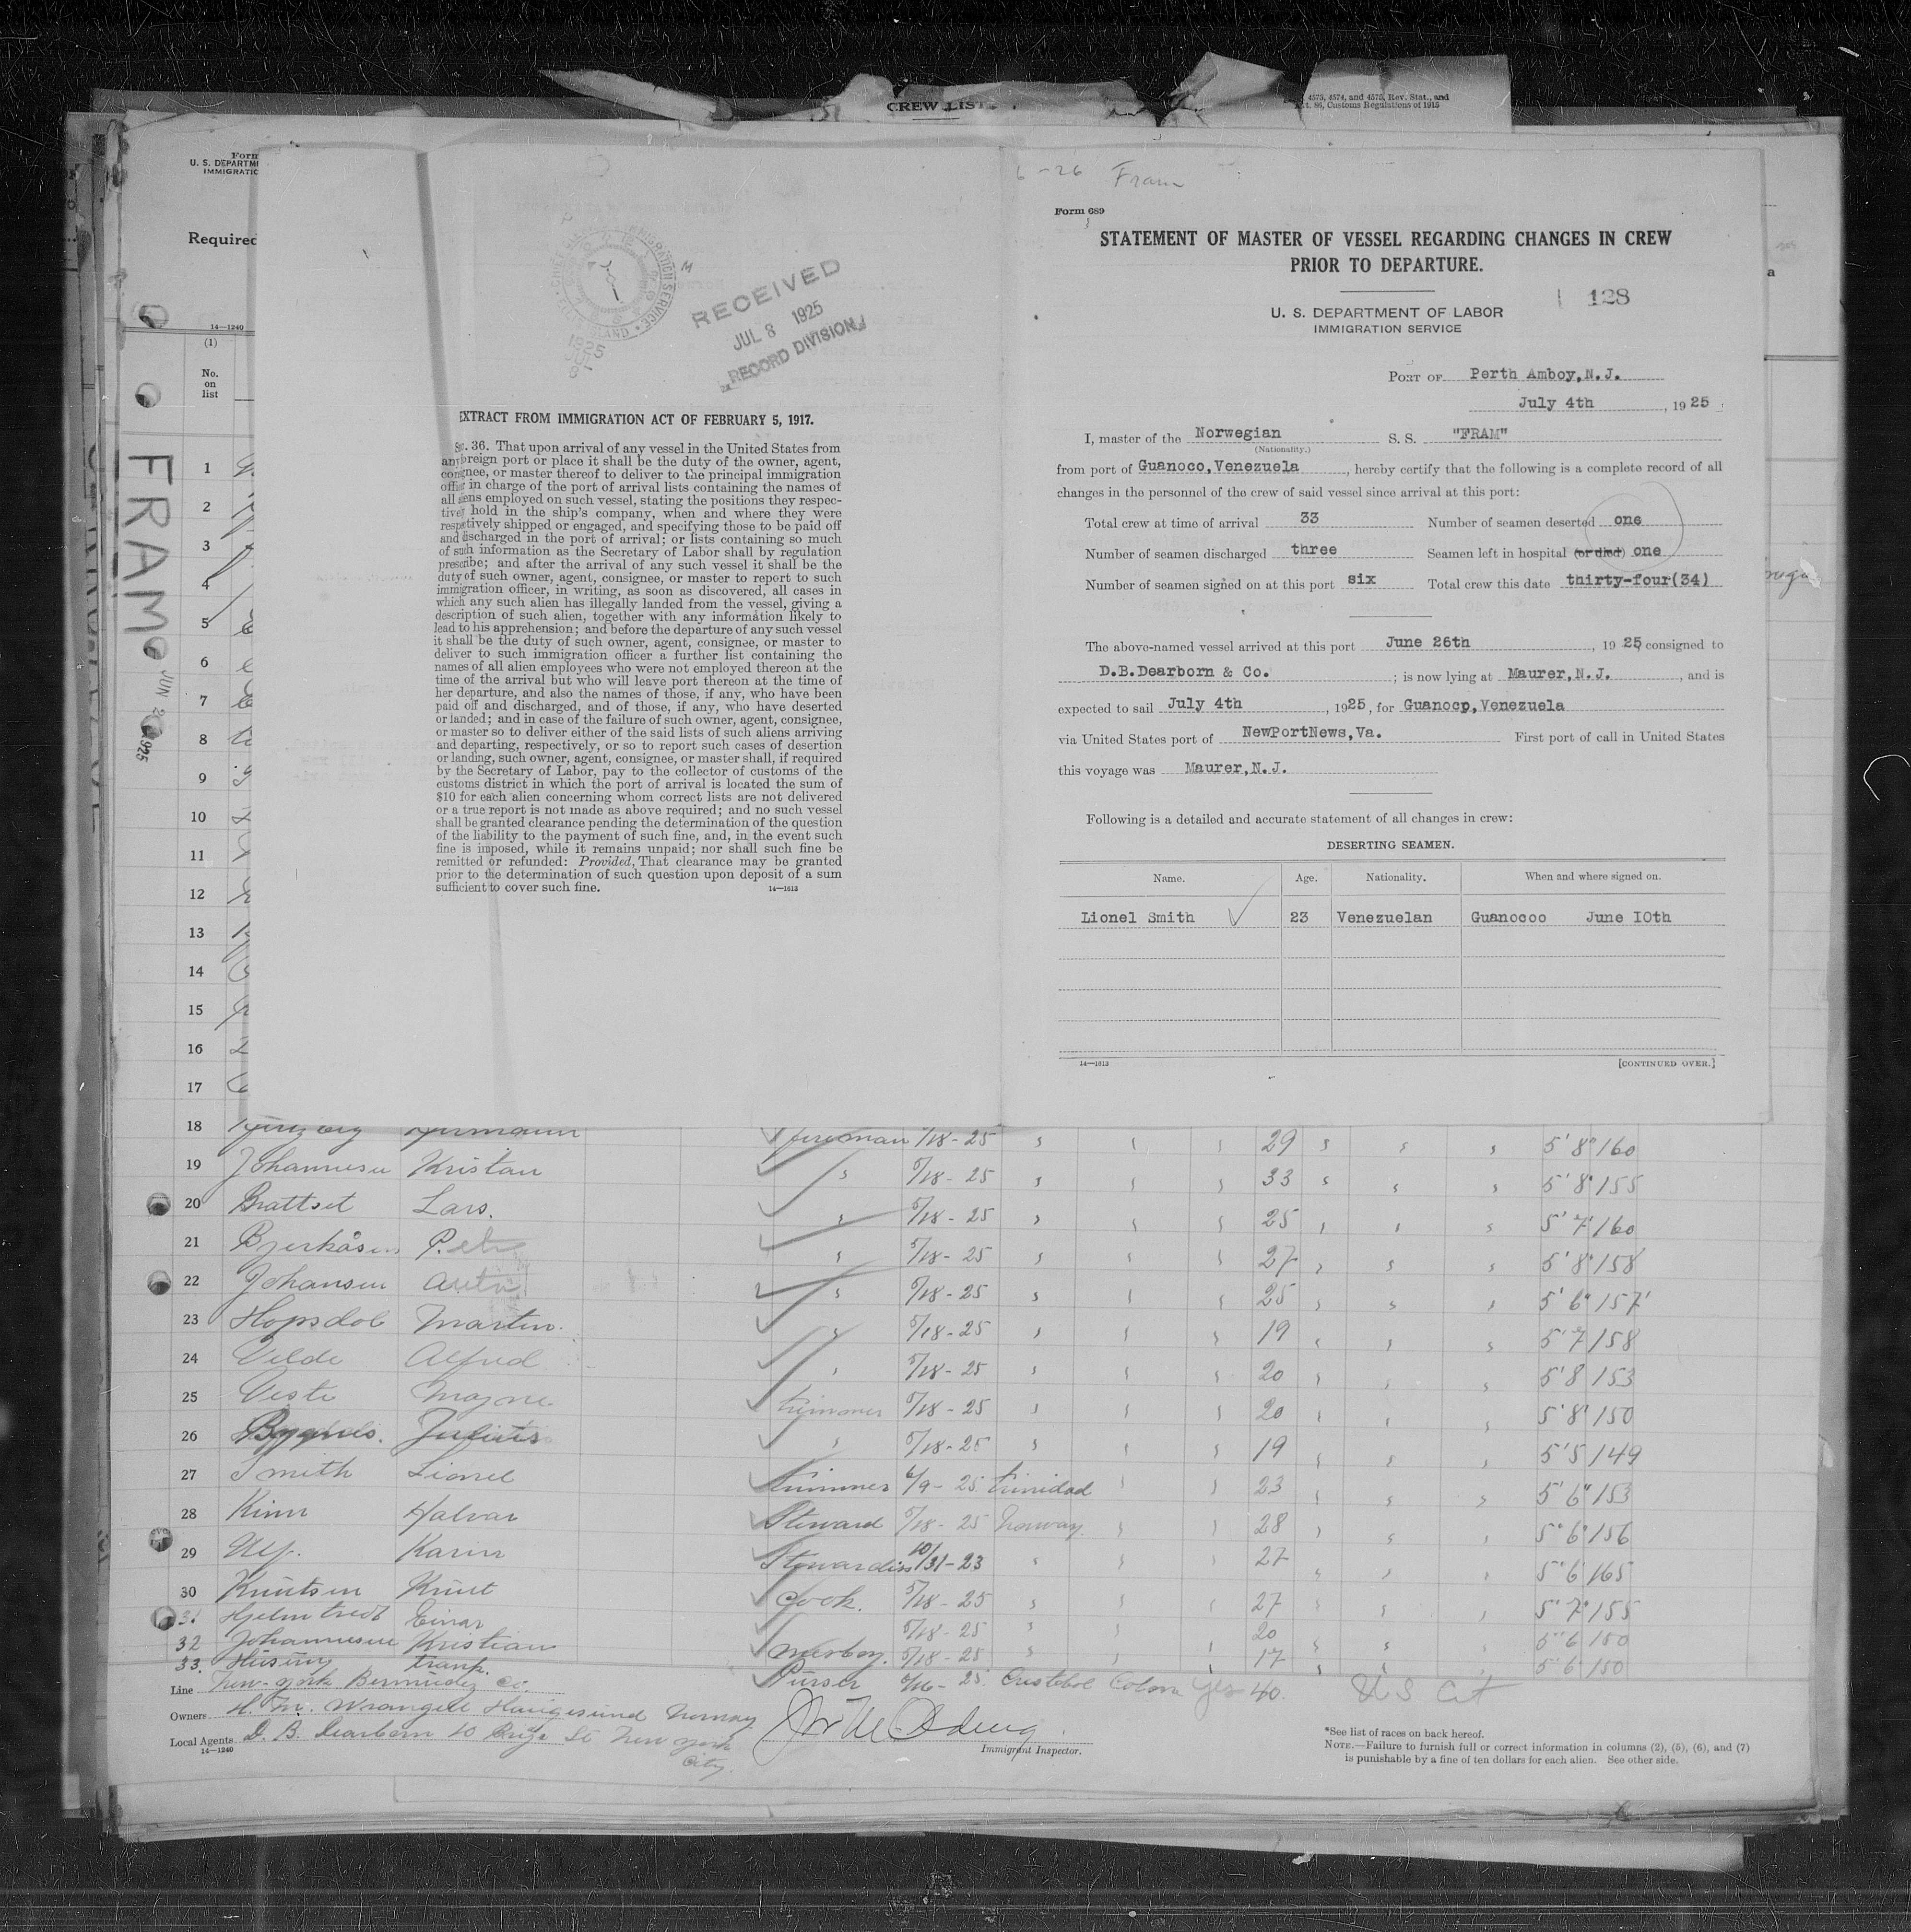 CREW LIST
4575, 4574, and 4575, Rev. Stat., and
86, Customs Regulations of 1915
Form
U. S. DEPARTM
IMMIGRATIO
Required
14—1240
(1)
No.
on
list
FRAM
JUN 2 1925
RECEIVED
JUL 8 1925
RECORD DIVISION
EXTRACT FROM IMMIGRATION ACT OF FEBRUARY 5, 1917.
36. That upon arrival of any vessel in the United States from
any foreign port or place it shall be the duty of the owner, agent,
consignee, or master thereof to deliver to the principal immigration
officer in charge of the port of arrival lists containing the names of
all aliens employed on such vessel, stating the positions they respec-
tively hold in the ship's company, when and where they were
respectively shipped or engaged, and specifying those to be paid off
and discharged in the port of arrival; or lists containing so much
of such information as the Secretary of Labor shall by regulation
prescribe; and after the arrival of any such vessel it shall be the
duty of such owner, agent, consignee, or master to report to such
immigration officer, in writing, as soon as discovered, all cases in
which any such alien has illegally landed from the vessel, giving a
description of such alien, together with any information likely to
lead to his apprehension; and before the departure of any such vessel
it shall be the duty of such owner, agent, consignee, or master to
deliver to such immigration officer a further list containing the
names of all alien employees who were not employed thereon at the
time of the arrival but who will leave port thereon at the time of
her departure, and also the names of those, if any, who have been
paid off and discharged, and of those, if any, who have deserted
or landed; and in case of the failure of such owner, agent, consignee,
or master so to deliver either of the said lists of such aliens arriving
and departing, respectively, or so to report such cases of desertion
or landing, such owner, agent, consignee, or master shall, if required
by the Secretary of Labor, pay to the collector of customs of the
customs district in which the port of arrival is located the sum of
$10 for each alien concerning whom correct lists are not delivered
or a true report is not made as above required; and no such vessel
shall be granted clearance pending the determination of the question
of the liability to the payment of such fine, and, in the event such
fine is imposed, while it remains unpaid; nor shall such fine be
remitted or refunded: Provided, That clearance may be granted
prior to the determination of such question upon deposit of a sum
sufficient to cover such fine. 14—1613
6-26 Fram
Form 689
STATEMENT OF MASTER OF VESSEL REGARDING CHANGES IN CREW
PRIOR TO DEPARTURE.
128
U. S. DEPARTMENT OF LABOR
IMMIGRATION SERVICE
PORT OF Perth Amboy,N.J.
July 4th , 1925
I, master of the Norwegian S. S. "FRAM"
(Nationality.)
from port of Guanoco,Venezuela , hereby certify that the following is a complete record of all
changes in the personnel of the crew of said vessel since arrival at this port:
Total crew at time of arrival 33 Number of seamen deserted one
Number of seamen discharged three Seamen left in hospital (or died) one
Number of seamen signed on at this port six Total crew this date thirty-four(34)
The above-named vessel arrived at this port June 26th , 1925 consigned to
D.B.Dearborn & Co. ; is now lying at Maurer,N.J. , and is
expected to sail July 4th , 1925, for Guanoco,Venezuela
via United States port of NewPortNews,Va. First port of call in United States
this voyage was Maurer,N.J.
Following is a detailed and accurate statement of all changes in crew:
DESERTING SEAMEN.
Name. Age. Nationality. When and where signed on.
Lionel Smith 23 Venezuelan Guanocoo June 10th
14—1613 [CONTINUED OVER.]
1
2
3
4
5
6
7
8
9
10
11
12
13
14
15
16
17
18 fireman 5/18-25 29 5'8" 160
19 Johannesen Kristian 5/18-25 33 5'8" 155
20 Brattset Lars. 5/18-25 25 5'7" 160
21 Bjerkåsen 5/18-25 27 5'8" 158
22 Johansen 5/18-25 25 5'6" 157
23 Hopsdol Martin. 5/18-25 19 5'7 158
24 Velde Alfred 5/18-25 20 5'8 153
25 Magne trimmer 5/18-25 20 5'8" 150
26 Julius 5/18-25 19 5'5 149
27 Smith Lionel trimmer 6/9-25 trinidad 23 5'6" 153
28 Kinn Halvar Steward 5/18-25 Norway 28 5'6" 156
29 Karin Stewardess 10/31-23 27 5'6 165
30 Knutsen Knut Cook. 5/18-25 27 5'7" 155
31 Einar 5/18-25 20 5'6 150
32 Johannesen Kristian messboy. 5/18-25 17 5'6 150
33. Purser 6/16-25 Cristobol Colon yes 40. US Cit
Line New-york Bermudez Co.
Owners H. M. Wrangell Haugesund Norway
Local Agents D. B. Dearborn 10 St New york
City.
14—1240
Immigrant Inspector.
*See list of races on back hereof.
NOTE.—Failure to furnish full or correct information in columns (2), (5), (6), and (7)
is punishable by a fine of ten dollars for each alien. See other side.